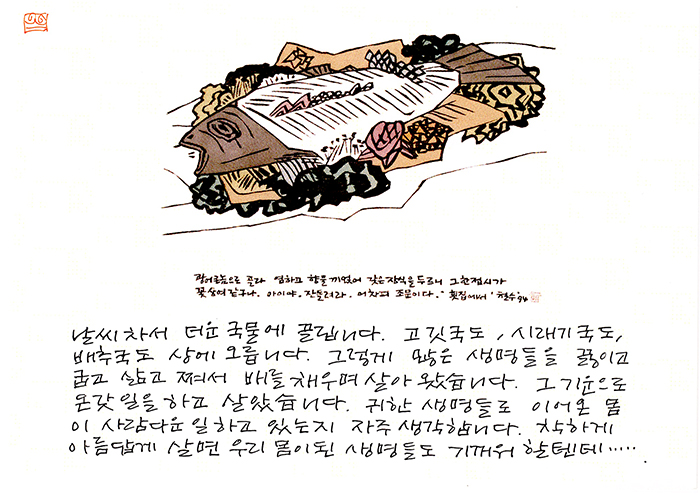 광어른놈으로 골라 염하고 향물 끼얹어 갖은장식을 두르니 그한접시가
꽃상여같구나. 아이야. 잔돌려라. 어차피 조문이다. 횟집에서 '철수'94
날씨차서 더운 국물에 끌립니다. 고깃국도, 시래기국도,
배추국도 상에 오릅니다. 그렇게 많은 생명들을 끓이고
굽고 삶고 쪄서 배를 채우며 살아 왔습니다. 그 기운으로
온갖 일을 하고 살았습니다. 귀한 생명들로 이어온 몸
이 사람다운 일 하고 있는지 자주 생각합니다. 착하게
아름답게 살면 우리 몸이된 생명들도 기꺼워 할텐데.....